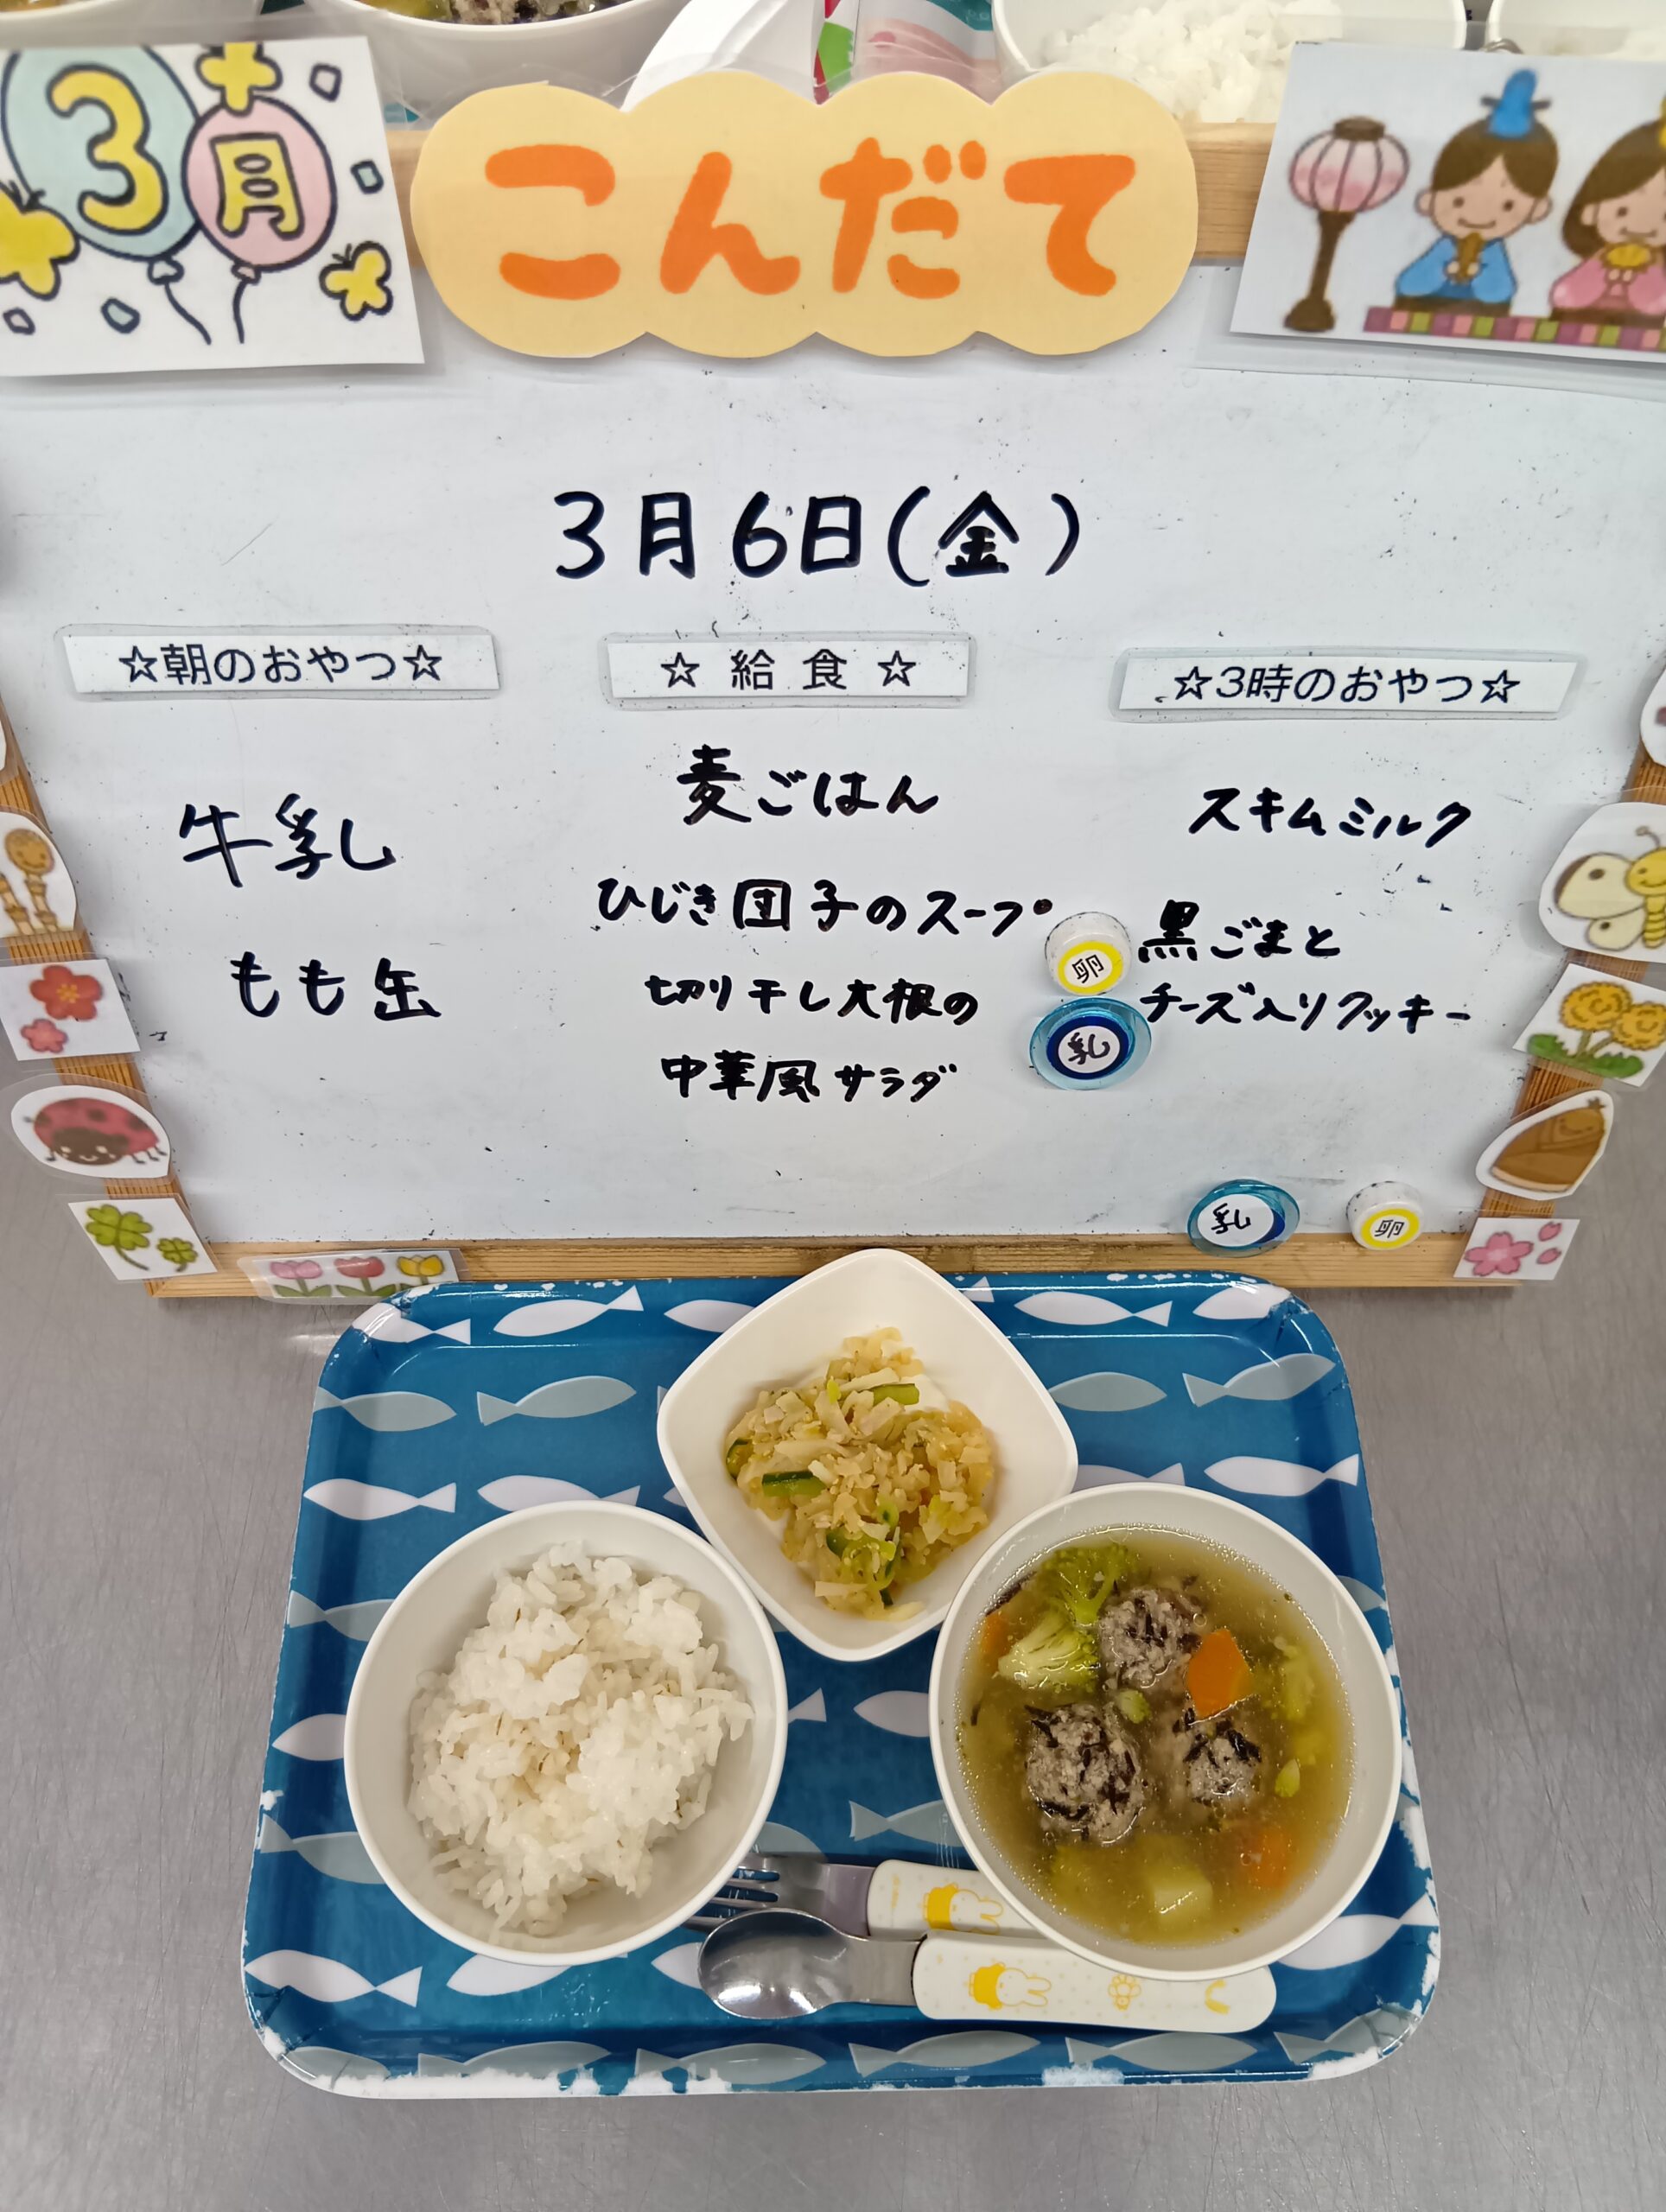 3月
こんだて
3月6日(金)
☆朝のおやつ☆
牛乳
もも缶
☆給食☆
麦ごはん
ひじき団子のスープ
切り干し大根の
中華風サラダ
☆3時のおやつ☆
スキムミルク
卵
黒ごまと
乳
チーズ入りクッキー
乳
卵